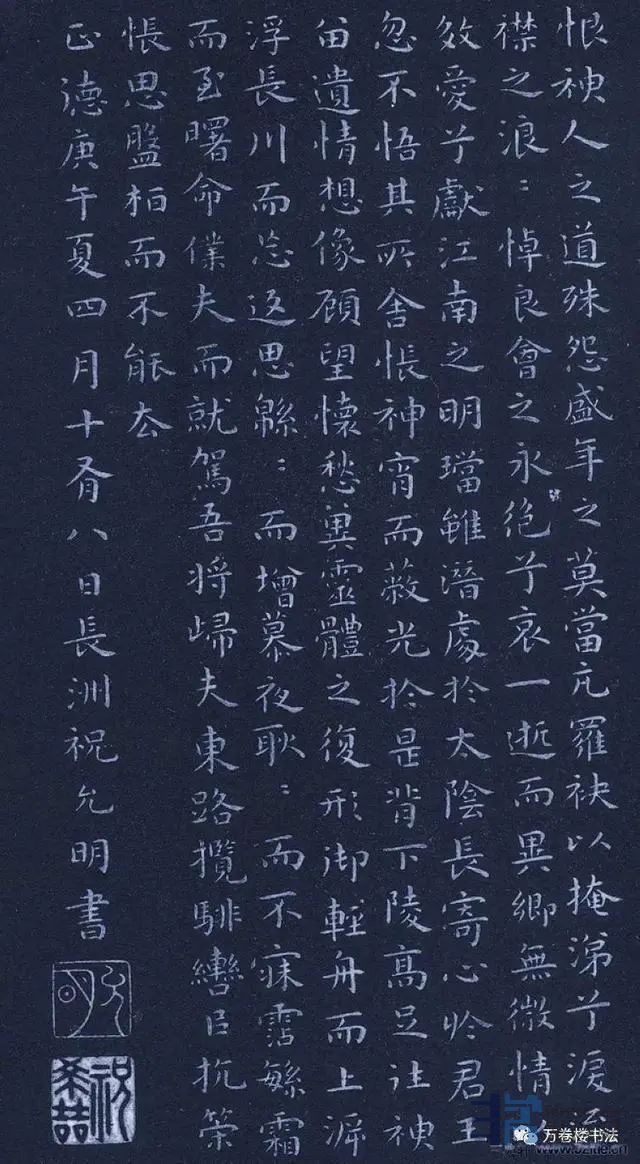 恨神人之道殊怨盛年之莫當亢羅袂以掩涕兮淚
襟之浪〻悼良會之永絶兮哀一逝而異鄉無微情
效愛兮獻江南之明璫雖潛處於太陰長寄心於君王
忽不悟其所舍悵神宵而蔽光於是背下陵高足往神
留遺情想像顧望懷愁冀靈體之復形御輕舟而上泝
浮長川而忘返思緜〻而增慕夜耿〻而不寐霑繁霜
而至曙命僕夫而就駕吾將歸夫東路攬騑轡以抗策
悵思盤桓而不能去
正德庚午夏四月十有八日長洲祝允明書
允明
祝希哲
万卷楼书法